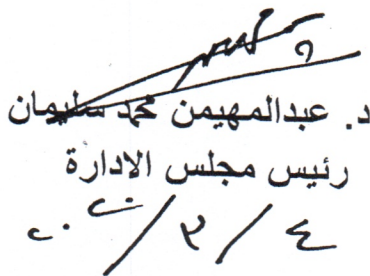 د. عبدالمهيمن محمد سليمان
رئيس مجلس الادارة
٢٠٢٠/٣/٤